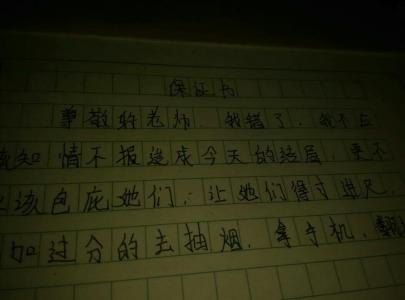 保证书
尊敬的老师 我错了，我不应
该知情不报造成今天的结局，更不
应该包庇她们；让她们得寸进尺，
加过分的去抽烟，拿手机，